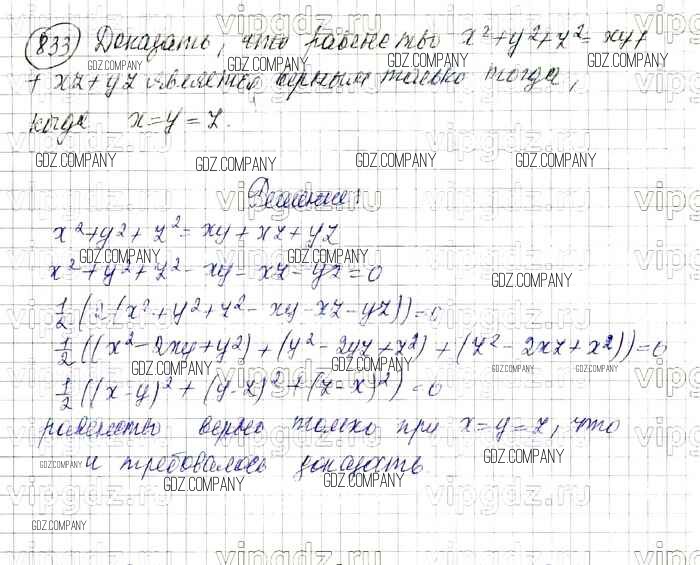 833 Доказать, что равенство x²+y²+z²= xy+
+ xz+yz является верным только тогда,
когда x=y=z.
Решение:
x²+y²+z²= xy+xz+yz
x²+y²+z²-xy-xz-yz=0
1/2(2(x²+y²+z²-xy-xz-yz))=0
1/2((x²-2xy+y²)+(y²-2yz+z²)+(z²-2xz+x²))=0
1/2((x-y)²+(y-z)²+(z-x)²)=0
равенство верно только при x=y=z, что
и требовалось доказать